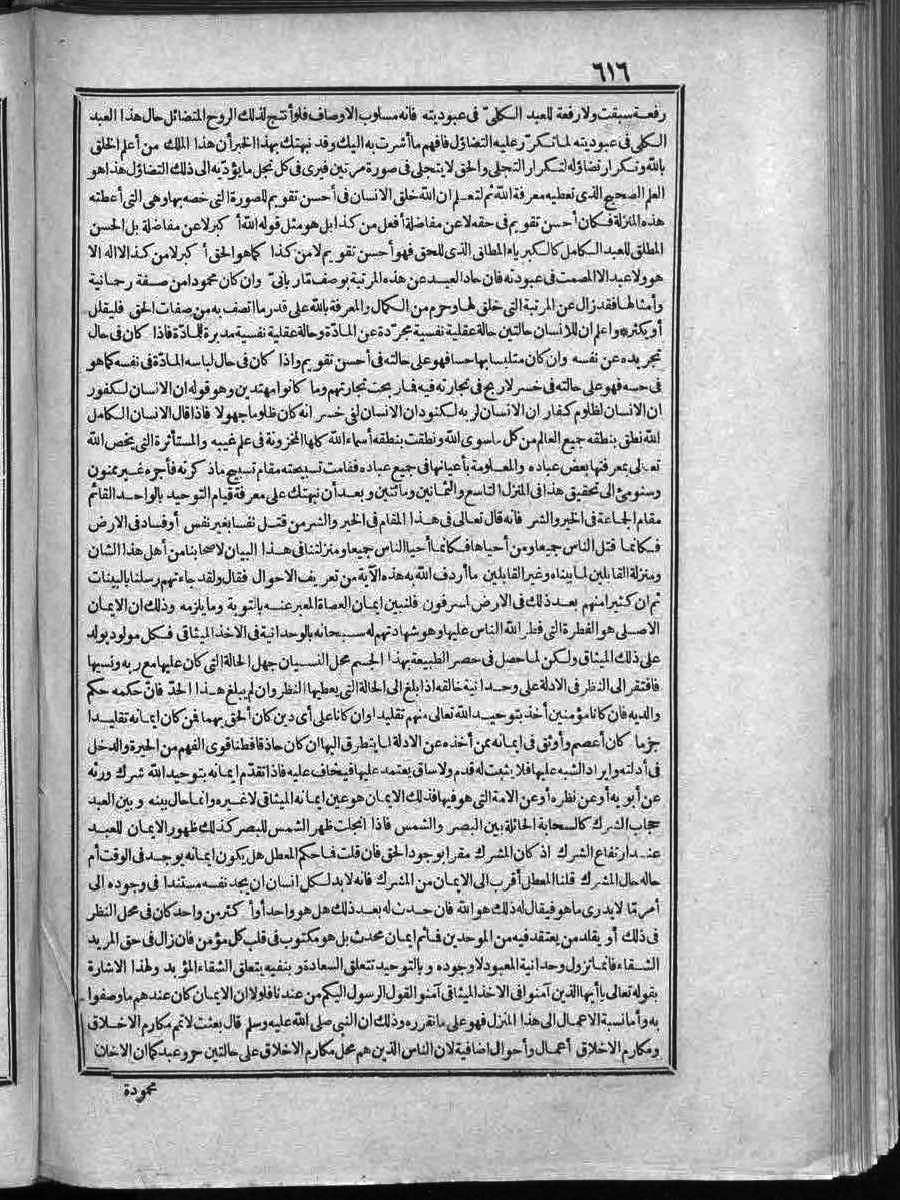 ٦١٦
رفعة سبقت ولا رفعة للعبد الكلىّ فى عبوديته فانه مسلوب الاوصاف فلو أنتج لذلك الروح المتضائل حال هذا العبد
الكلى فى عبوديته لما تكرّر عليه التضاؤل فافهم ما أشرت به اليك وقد نبهتك بهذا الخبر أن هذا الملك من أعلم الخلق
بالله وتكرار تضاؤله لتكرار التجلى والحق لا يتجلى فى صورة مرتين فيرى فى كل تجل ما يؤدّيه الى ذلك التضاؤل هذا هو
العلم الصحيح الذى تعطيه معرفة الله ثم لتعلم ان الله خلق الانسان فى أحسن تقويم للصورة التى خصه بها وهى التى أعطته
هذه المنزلة فكان أحسن تقويم فى حقه لا عن مفاضلة أفعل من كذا بل هو مثل قوله الله أكبر لا عن مفاضلة بل الحسن
المطلق للعبد الكامل كالكبرياء المطلق الذى للحق فهو أحسن تقويم لا من كذا كما هو الحق أكبر لا من كذا لا اله الا
هو ولا عبد الا المصمت فى عبودته فان حاد العبد عن هذه المرتبة بوصف مّا ربانىّ وان كان محمودا من صفة رحمانية
وأمثالها فقد زال عن المرتبة التى خلق لها وحرم من الكمال والمعرفة بالله على قدر ما اتصف به من صفات الحق فليقلل
أو يكثر * واعلم ان للانسان حالتين حالة عقلية نفسية مجرّدة عن المادّة وحالة عقلية نفسية مدبرة للمادّة فاذا كان فى حال
تجريده عن نفسه وان كان متلبسا بها حسا فهو على حالته فى أحسن تقويم واذا كان فى حال لباسه المادّة فى نفسه كما هو
فى حسه فهو على حالته فى خسر لا ربح فى تجارته فيه فما ربحت تجارتهم وما كانوا مهتدين وهو قوله ان الانسان لكفور
ان الانسان لظلوم كفار ان الانسان لربه لكنود ان الانسان لفى خسر انه كان ظلوما جهولا فاذا قال الانسان الكامل
الله نطق بنطقه جميع العالم من كل ما سوى الله ونطقت بنطقه أسماء الله كلها المخزونة فى علم غيبه والمستأثرة التى يخص الله
تعالى بمعرفتها بعض عباده والمعلومة بأعيانها فى جميع عباده فقامت تسبيحته مقام تسبيح ما ذكرته فأجره غير ممنون
وسنومئ الى تحقيق هذا فى المنزل التاسع والثمانين ومائتين وبعد أن نبهتك على معرفة قيام التوحيد بالواحد القائم
مقام الجماعة فى الخير والشر فانه قال تعالى فى هذا المقام فى الخير والشر من قتل نفسا بغير نفس أو فساد فى الارض
فكأنما قتل الناس جميعا ومن أحياها فكأنما أحيا الناس جميعا ومنزلتنا فى هذا البيان لاصحابنا من أهل هذا الشان
ومنزلة القابلين لما بيناه وغير القابلين ما أردف الله به هذه الآية من تعريف الاحوال فقال ولقد جاءتهم رسلنا بالبينات
ثم ان كثيرا منهم بعد ذلك فى الارض لمسرفون فلنبين ايمان العصاة المعبر عنه بالتوبة وما يلزمه وذلك ان الايمان
الاصلى هو الفطرة التى فطر الله الناس عليها وهو شهادتهم له سبحانه بالوحدانية فى الاخذ الميثاقى فكل مولود يولد
على ذلك الميثاق ولكن لما حصل فى حصر الطبيعة بهذا الجسم محل النسيان جهل الحالة التى كان عليها مع ربه ونسيها
فافتقر الى النظر فى الادلة على وحدانية خالقه اذا بلغ الى الحالة التى يعطيها النظر وان لم يبلغ هذا الحدّ فانّ حكمه حكم
والديه فان كانا مؤمنين أخذ بتوحيد الله تعالى منهم تقليدا وان كانا على أى دين كان ألحق بهما فمن كان ايمانه تقليدا
جزما كان أعصم وأوثق فى ايمانه ممن أخذه عن الادلة لما يتطرق اليها ان كان حاذقا فطنا قوى الفهم من الحيرة والدخل
فى أدلته وايراد الشبه عليها فلا يثبت له قدم ولا ساق يعتمد عليها فيخاف عليه فاذا تقدّم ايمانه بتوحيد الله شرك ورثه
عن أبويه أو عن نظره أو عن الامة التى هو فيها فذلك الايمان هو عين ايمانه الميثاقى لا غيره وانما حال بينه وبين العبد
حجاب الشرك كالسحابة الحائلة بين البصر والشمس فاذا انجلت ظهر الشمس للبصر كذلك ظهور الايمان للعبد
عند ارتفاع الشرك اذ كان المشرك مقرا بوجود الحق فان قلت فما حكم المعطل هل يكون ايمانه يوجد فى الوقت أم
حاله حال المشرك قلنا المعطل أقرب الى الايمان من المشرك فانه لا بد لكل انسان ان يجد نفسه مستندا فى وجوده الى
أمر مّا لا يدرى ما هو فيقال له ذلك هو الله فان حدث له بعد ذلك هل هو واحد أو أكثر من واحد كان فى محل النظر
فى ذلك أو يقلد من يعتقد فيه من الموحدين فما ثم ايمان محدث بل هو مكتوب فى قلب كل مؤمن فان زال فى حق المريد
الشقاء فانما تزول وحدانية المعبود لا وجوده وبالتوحيد تتعلق السعادة وبنفيه يتعلق الشقاء المؤبد ولهذا الاشارة
بقوله تعالى يا أيها الذين آمنوا فى الاخذ الميثاقى آمنوا لقول الرسول اليكم من عندنا فلولا ان الايمان كان عندهم ما وصفوا
به وأما نسبة الاعمال الى هذا المنزل فهو على ما نقرره وذلك ان النبى صلى الله عليه وسلم قال بعثت لاتمم مكارم الاخلاق
ومكارم الاخلاق أعمال وأحوال اضافية لان الناس الذين هم محل مكارم الاخلاق على حالتين حر وعبد كما ان الاخلاق
محمودة